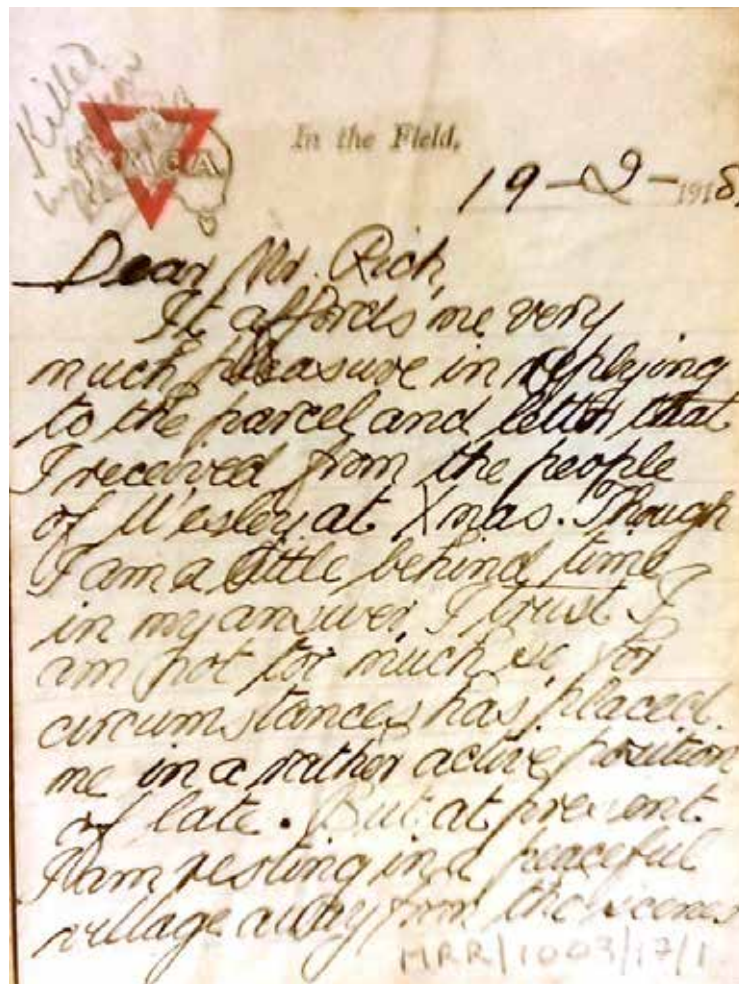 Killed
in
Y.M.C.A
In the Field,
19-2-1918,
Dear Mr. Rich,
It affords me very
much pleasure in replying
to the parcel and letter that
I received from the people
of Wesley at Xmas. Though
I am a little behind time
in my answer I trust I
am not too much so for
circumstances has placed
me in a rather active position
of late. But at present
I am resting in a peaceful
village away from the scenes
MRR/1003/17/1